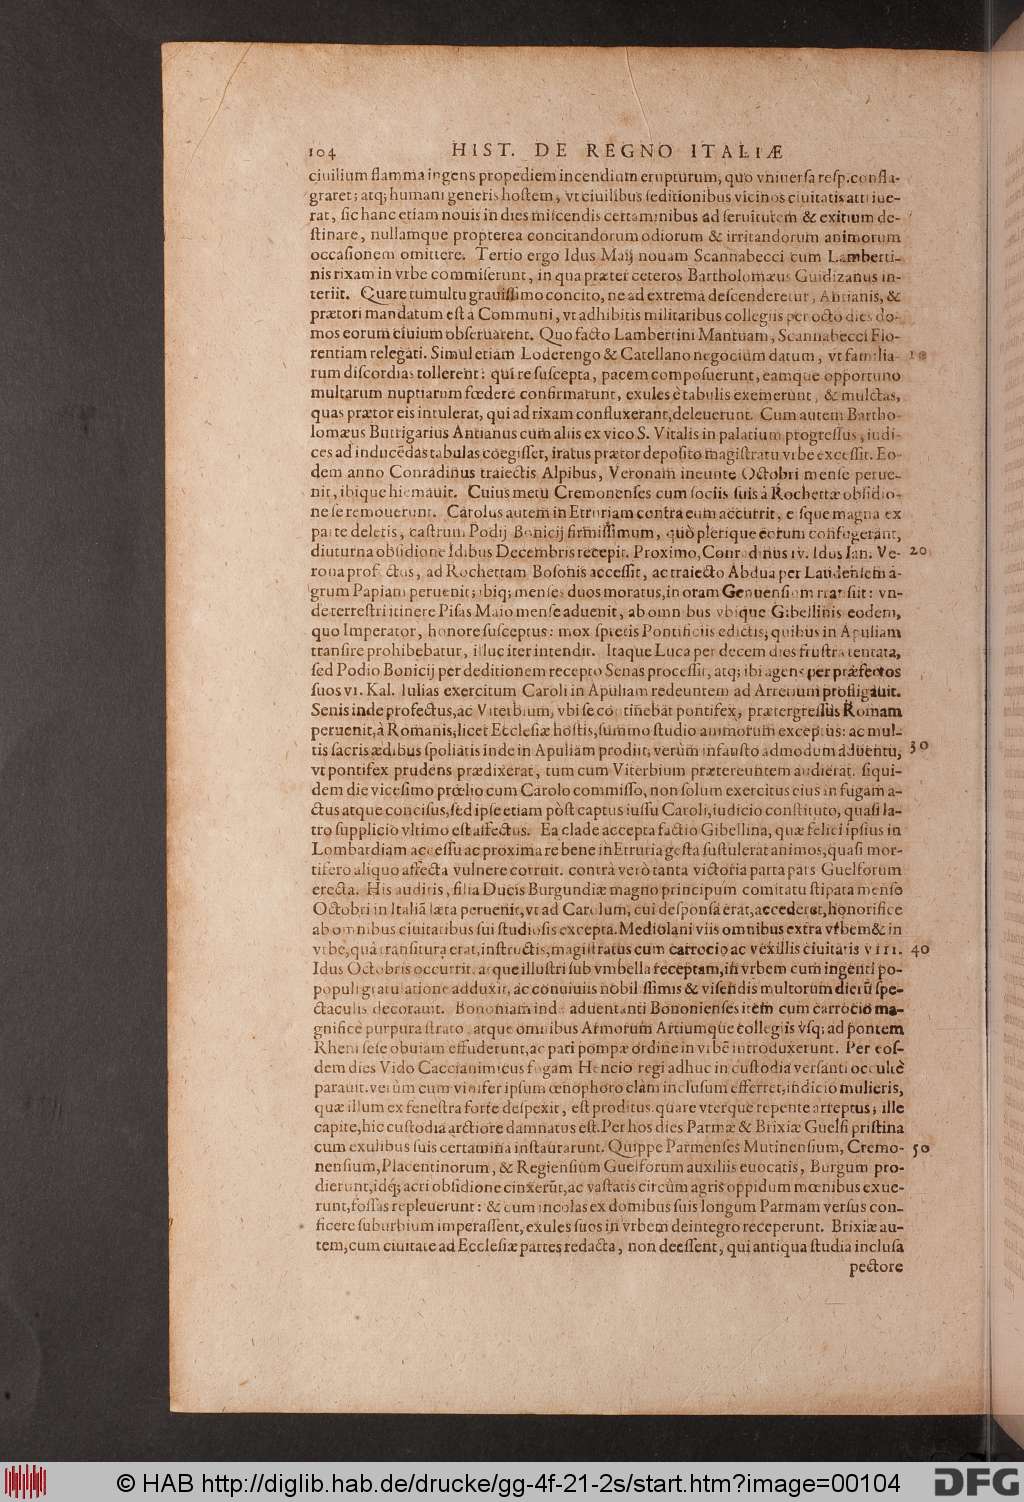 104 HIST. DE REGNO ITALIÆ
ciuilium flamma ingens propediem incendium erupturum, quo vniuersa resp. confla-
graret; atq; humani generis hostem, vt ciuilibus seditionibus vicinos ciuitatis attriue-
rat, sic hanc etiam nouis in dies miscendis certaminibus ad seruitutem & exitium de-
stinare, nullamque propterea concitandorum odiorum & irritandorum animorum
occasionem omittere. Tertio ergo Idus Maij nouam Scannabecci cum Lamberti-
nis rixam in vrbe commiserunt, in qua præter ceteros Bartholomæus Guidizanus in-
teriit. Quare tumultu grauissimo concito, ne ad extrema descenderetur, Antianis, &
prætori mandatum est à Communi, vt adhibitis militaribus collegiis per octo dies do-
mos eorum ciuium obseruarent. Quo facto Lambertini Mantuam, Scannabecci Flo-
rentiam relegati. Simul etiam Loderengo & Catellano negocium datum, vt familia- 10
rum discordias tollerent: qui re suscepta, pacem composuerunt, eamque opportuno
multarum nuptiarum fœdere confirmarunt, exules è tabulis exemerunt, & mulctas,
quas prætor eis intulerat, qui ad rixam confluxerant, deleuerunt. Cum autem Bartho-
lomæus Buttrigarius Antianus cum aliis ex vico S. Vitalis in palatium progressus, iudi-
ces ad inducēdas tabulas coegisset, iratus prætor deposito magistratu vrbe excessit. Eo-
dem anno Conradinus traiectis Alpibus, Veronam ineunte Octobri mense perue-
nit, ibique hiemauit. Cuius metu Cremonenses cum sociis suis à Rochettæ obsidio-
ne se remouerunt. Carolus autem in Etruriam contra eum accurrit, eisque magna ex
parte deletis, castrum Podij Bonicij firmissimum, quò plerique eorum confugerant,
diuturna obsidione Idibus Decembris recepit. Proximo, Conradinus IV. Idus Ian. Ve- 20
rona profectus, ad Rochettam Bosonis accessit, ac traiecto Abdua per Laudensem a-
grum Papiam peruenit; ibiq; menses duos moratus, in oram Genuensium transiit: vn-
de terrestri itinere Pisas Maio mense aduenit, ab omnibus vbique Gibellinis eodem,
quo Imperator, honore susceptus: mox spretis Pontificiis edictis, quibus in Apuliam
transire prohibebatur, illuc iter intendit. Itaque Luca per decem dies frustra tentata,
sed Podio Bonicij per deditionem recepto Senas processit, atq; ibi agens per præfectos
suos VI. Kal. Iulias exercitum Caroli in Apuliam redeuntem ad Arretium profligauit.
Senis inde profectus, ac Viterbium, vbi se continebat pontifex, prætergressus Romam
peruenit, à Romanis, licet Ecclesiæ hostis, summo studio animorum exceptus: ac mul-
tis sacris ædibus spoliatis inde in Apuliam prodiit; verùm infausto admodum aduentu, 30
vt pontifex prudens prædixerat, tum cum Viterbium prætereuntem audierat. siqui-
dem die vicesimo prœlio cum Carolo commisso, non solum exercitus eius in fugam a-
ctus atque concisus, sed ipse etiam pòst captus iussu Caroli, iudicio constituto, quasi la-
tro supplicio vltimo est affectus. Ea clade accepta factio Gibellina, quæ felici ipsius in
Lombardiam accessu ac proxima re bene in Etruria gesta sustulerat animos, quasi mor-
tifero aliquo affecta vulnere corruit. contrà verò tanta victoria parta pars Guelforum
erecta. His auditis, filia Ducis Burgundiæ magno principum comitatu stipata mense
Octobri in Italiā læta peruenit, vt ad Carolum, cui desponsa erat, accederet, honorifice
ab omnibus ciuitatibus sui studiosis excepta. Mediolani viis omnibus extra vrbem & in
vrbe, quà transitura erat, instructis, magistratus cum carrocio ac vexillis ciuitatis VIII. 40
Idus Octobris occurrit. atque illustri sub vmbella receptam, in vrbem cum ingenti po-
populi gratulatione adduxit, ac conuiuiis nobilissimis & visendis multorum dierū spe-
ctaculis decorauit. Bononiam inde aduentanti Bononienses item cum carrocio ma-
gnifice purpura strato, atque omnibus Armorum Artiumque collegiis vsq; ad pontem
Rheni sese obuiam effuderunt, ac pari pompæ ordine in vrbē introduxerunt. Per eos-
dem dies Vido Caccianimicus fugam Hencio regi adhuc in custodia versanti occultè
parauit. verùm cum vinifer ipsum œnophoro clam inclusum efferret, indicio mulieris,
quæ illum ex fenestra forte despexit, est proditus. quare vterque repente arreptus; ille
capite, hic custodia arctiore damnatus est. Per hos dies Parmæ & Brixiæ Guelfi pristina
cum exulibus suis certamina instaurarunt. Quippe Parmenses Mutinensium, Cremo- 50
nensium, Placentinorum, & Regiensium Guelforum auxiliis euocatis, Burgum pro-
dierunt, idq; acri obsidione cinxerūt, ac vastatis circùm agris oppidum mœnibus exue-
runt, fossas repleuerunt: & cum incolas ex domibus suis longum Parmam versus con-
ficere suburbium imperassent, exules suos in vrbem deintegro receperunt. Brixiæ au-
tem, cum ciuitate ad Ecclesiæ partes redacta, non deessent, qui antiqua studia inclusa
pectore
© HAB http://diglib.hab.de/drucke/gg-4f-21-2s/start.htm?image=00104
DFG